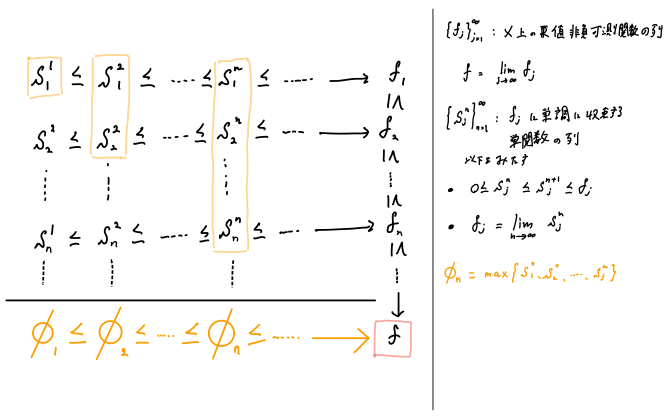 S₁¹ ≤ S₁² ≤ ‥‥ ≤ S₁ⁿ ≤ ‥‥ → f₁
≤
S₂¹ ≤ S₂² ≤ ‥‥ ≤ S₂ⁿ ≤ ‥‥ → f₂
≤
⋮ ⋮ ⋮ ⋮
≤
Sₙ¹ ≤ Sₙ² ≤ ‥‥ ≤ Sₙⁿ ≤ ‥‥ → fₙ
≤
⋮ ⋮ ⋮ ⋮
↓
φ₁ ≤ φ₂ ≤ ‥‥ ≤ φₙ ≤ ‥‥ → f
{fⱼ}ⱼ₌₁^∞ : X上の実値非負可測関数の列
f = lim_{j→∞} fⱼ
{Sⱼⁿ}ₙ₌₁^∞ : fⱼに単調に収束する
単関数の列
以下をみたす
• 0 ≤ Sⱼⁿ ≤ Sⱼⁿ⁺¹ ≤ fⱼ
• fⱼ = lim_{n→∞} Sⱼⁿ
φₙ = max{S₁ⁿ, S₂ⁿ, ‥‥, Sⱼⁿ}